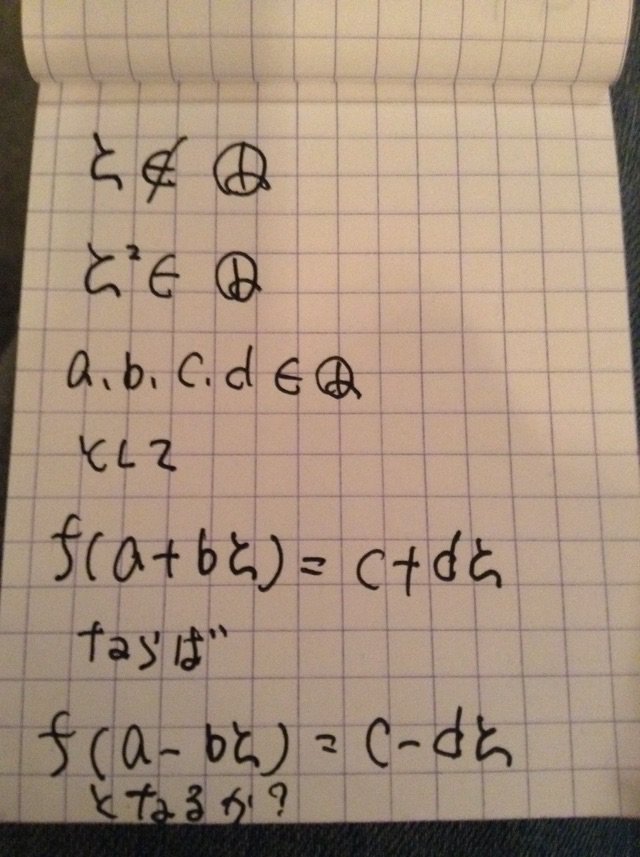 ζ ∉ ℚ
ζ² ∈ ℚ
a, b, c, d ∈ ℚ
として
f(a+bζ) = c+dζ
ならば
f(a-bζ) = c-dζ
となるか?